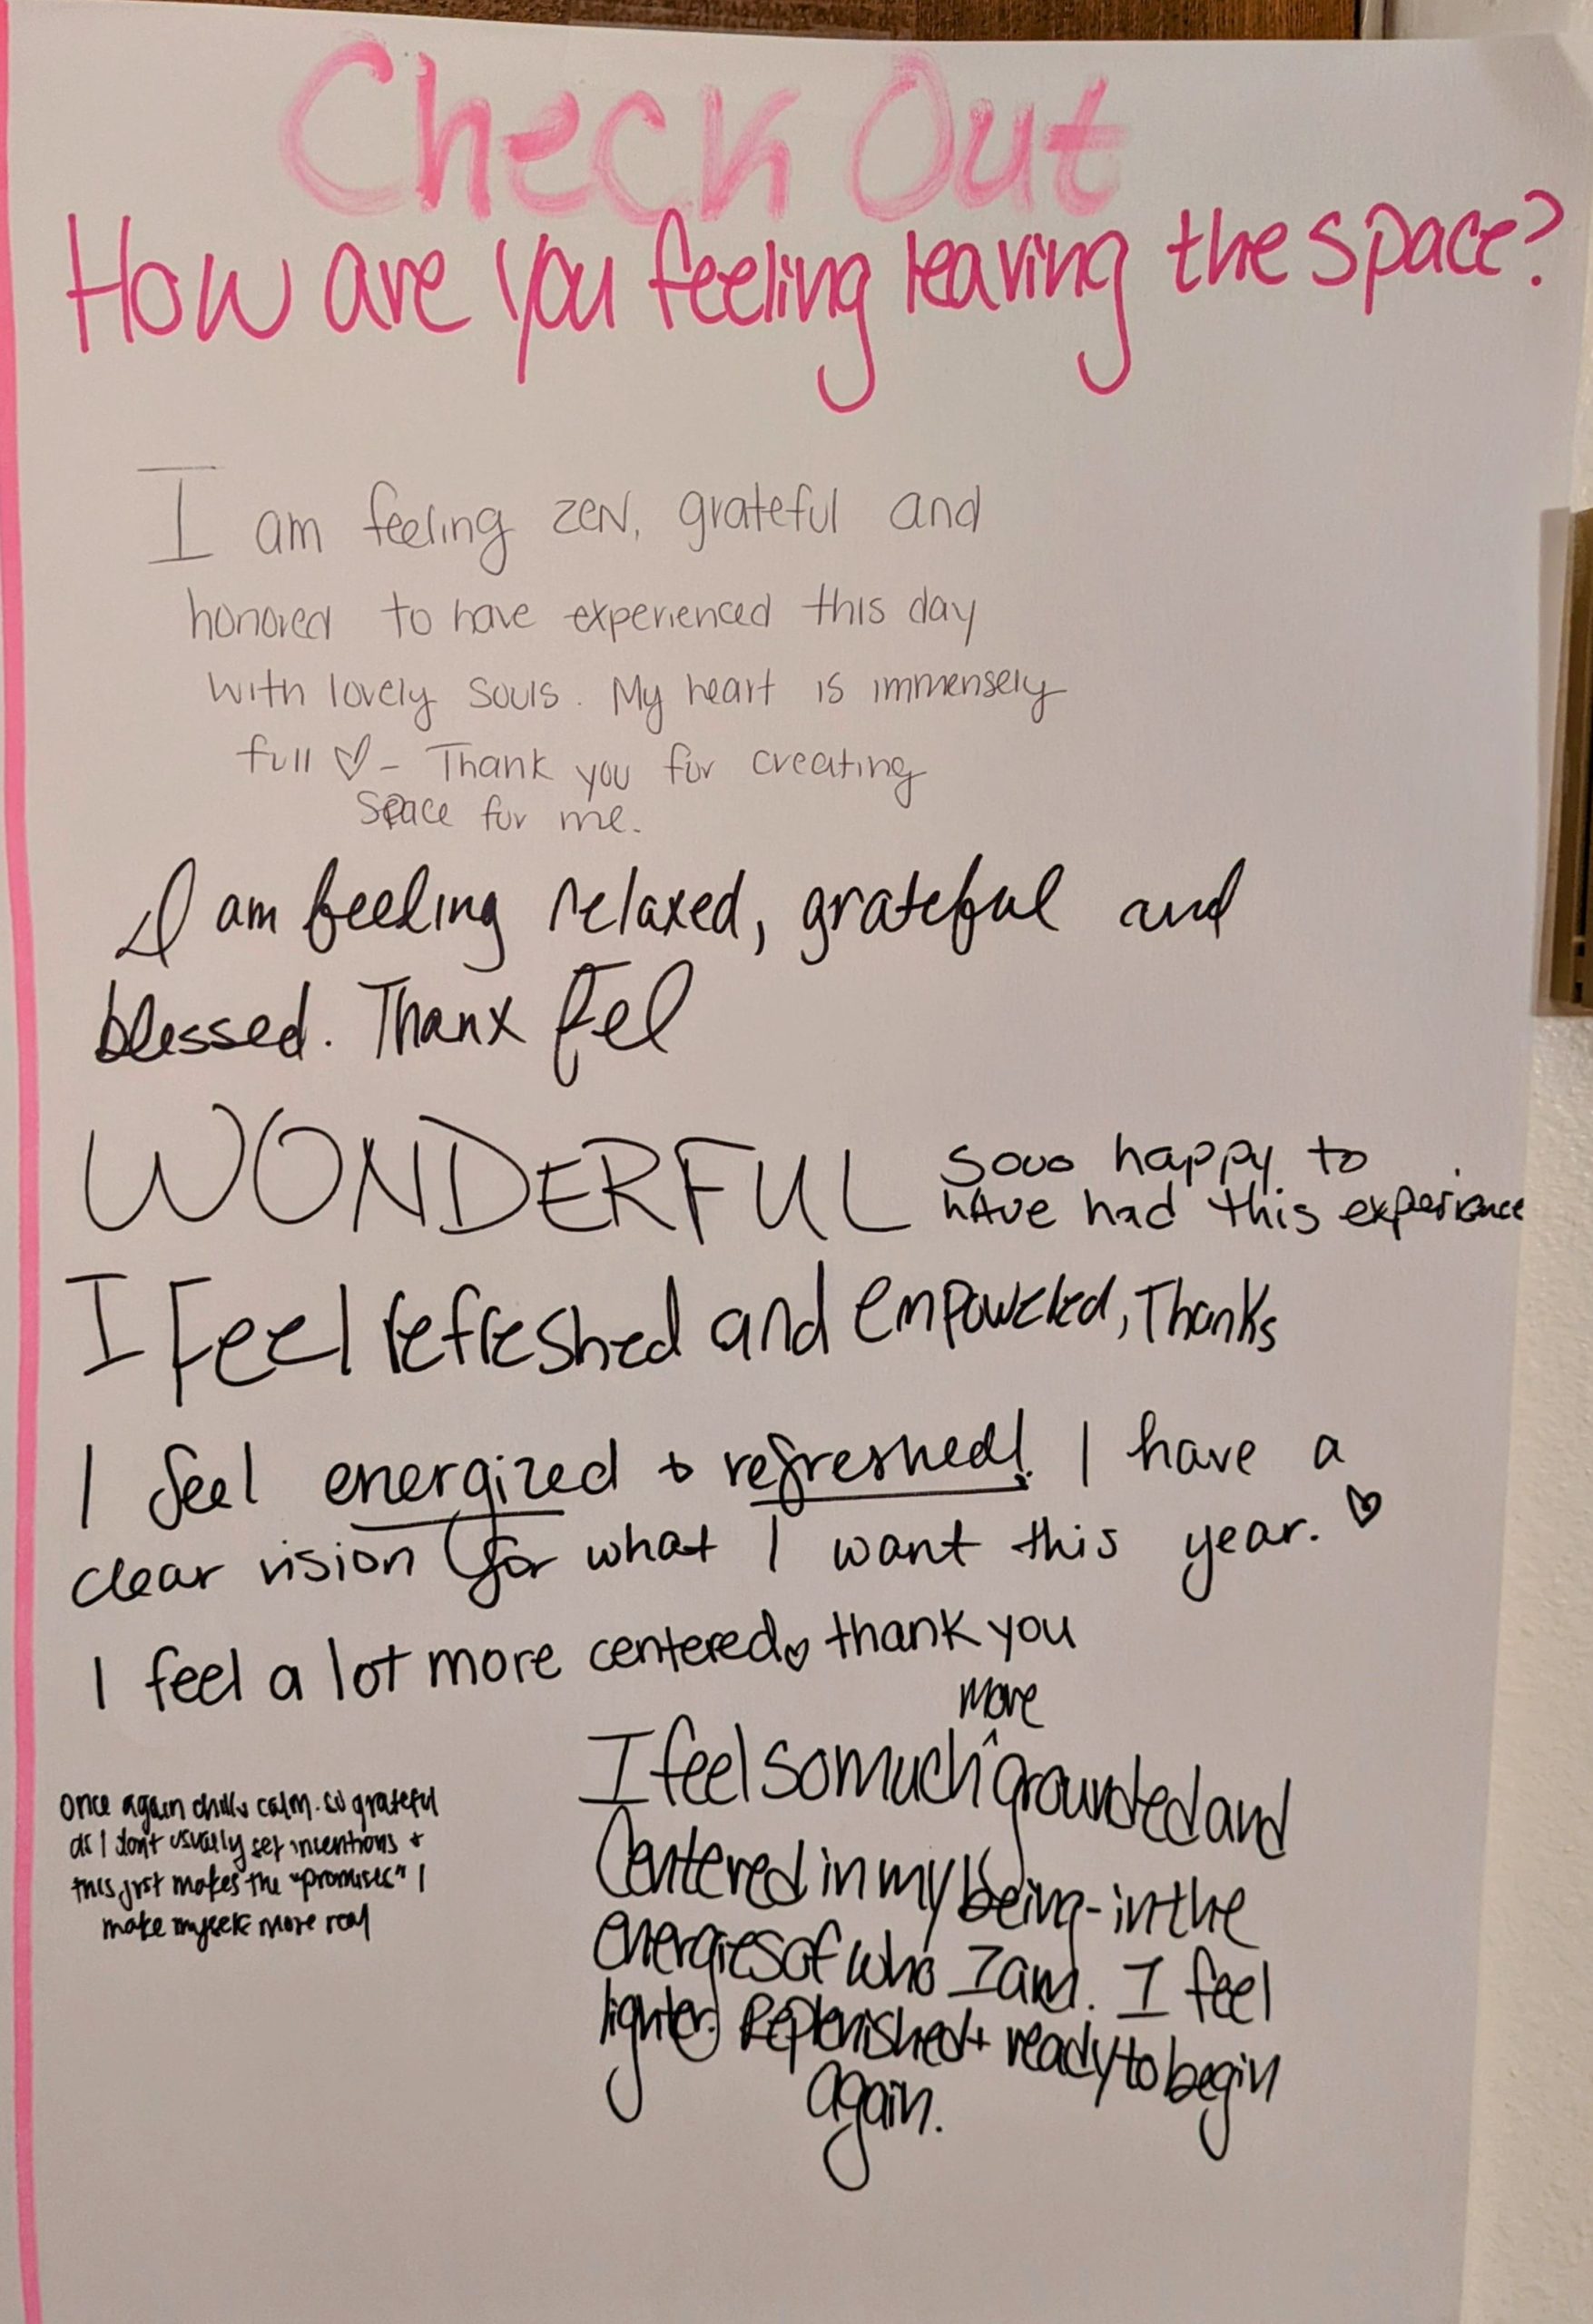 Check Out
How are you feeling leaving the space?
I am feeling zen, grateful and
honored to have experienced this day
with lovely souls. My heart is immensely
full ♡ - Thank you for creating
space for me.
I am feeling relaxed, grateful and
blessed. Thanx Fel
WONDERFUL
Sooo happy to
have had this experience
I feel refreshed and empowered, Thanks
I feel energized & refreshed! I have a
clear vision for what I want this year. ♡
I feel a lot more centered ♡ thank you
Once again chill & calm. so grateful
as I don't usually set intentions +
this just makes the "promises" I
make myself more real
more
I feel so much ^ grounded and
Centered in my being - in the
energies of who I am. I feel
lighter. Replenished + ready to begin
again.